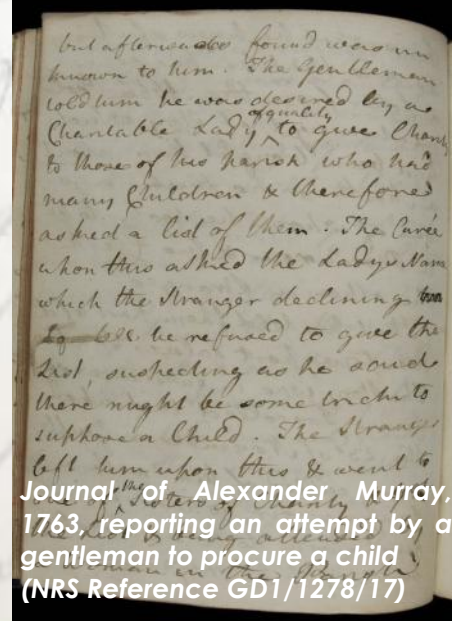 but afterwards found was un
known to him. The Gentleman
told him he was desired by a
Charitable Lady of quality to give Charity
to those of his parish who had
many Children & therefore
asked a list of them. The Curée
upon this asked the Ladys Name
which the Stranger declining
he refused to give the
List, suspecting as he said
there might be some trick to
suppose a Child. The Stranger
left him upon this & went to
the Sisters of Charity
Journal of Alexander Murray,
1763, reporting an attempt by a
gentleman to procure a child
(NRS Reference GD1/1278/17)